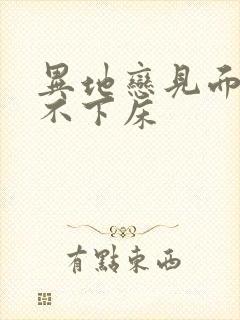 異地戀見面
不下床
有點東西